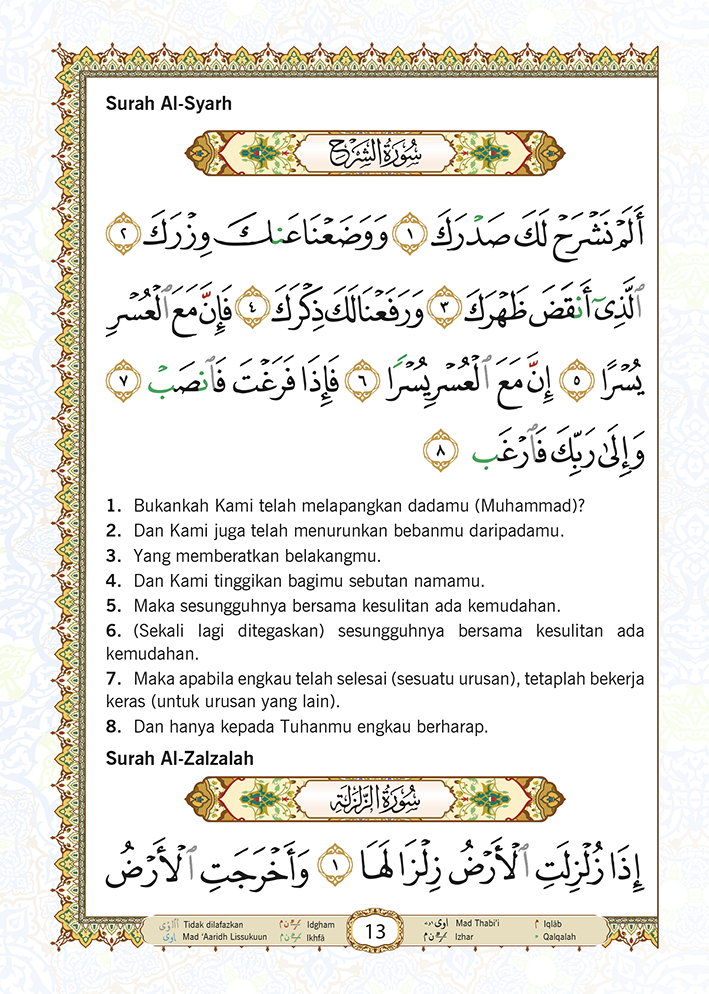 Surah Al-Syarh
سُورَةُ الشَّرْحِ
أَلَمْ نَشْرَحْ لَكَ صَدْرَكَ ١ وَوَضَعْنَا عَنكَ وِزْرَكَ ٢
ٱلَّذِىٓ أَنقَضَ ظَهْرَكَ ٣ وَرَفَعْنَا لَكَ ذِكْرَكَ ٤ فَإِنَّ مَعَ ٱلْعُسْرِ
يُسْرًا ٥ إِنَّ مَعَ ٱلْعُسْرِ يُسْرًا ٦ فَإِذَا فَرَغْتَ فَٱنصَبْ ٧
وَإِلَىٰ رَبِّكَ فَٱرْغَب ٨
1. Bukankah Kami telah melapangkan dadamu (Muhammad)?
2. Dan Kami juga telah menurunkan bebanmu daripadamu.
3. Yang memberatkan belakangmu.
4. Dan Kami tinggikan bagimu sebutan namamu.
5. Maka sesungguhnya bersama kesulitan ada kemudahan.
6. (Sekali lagi ditegaskan) sesungguhnya bersama kesulitan ada
kemudahan.
7. Maka apabila engkau telah selesai (sesuatu urusan), tetaplah bekerja
keras (untuk urusan yang lain).
8. Dan hanya kepada Tuhanmu engkau berharap.
Surah Al-Zalzalah
سُورَةُ الزَّلْزَلَةِ
إِذَا زُلْزِلَتِ ٱلْأَرْضُ زِلْزَالَهَا ١ وَأَخْرَجَتِ ٱلْأَرْضُ
Tidak dilafazkan Idgham 13 Mad Thabi'i م Iqlāb
Mad 'Aaridh Lissukuun Ikhfā Izhar Qalqalah